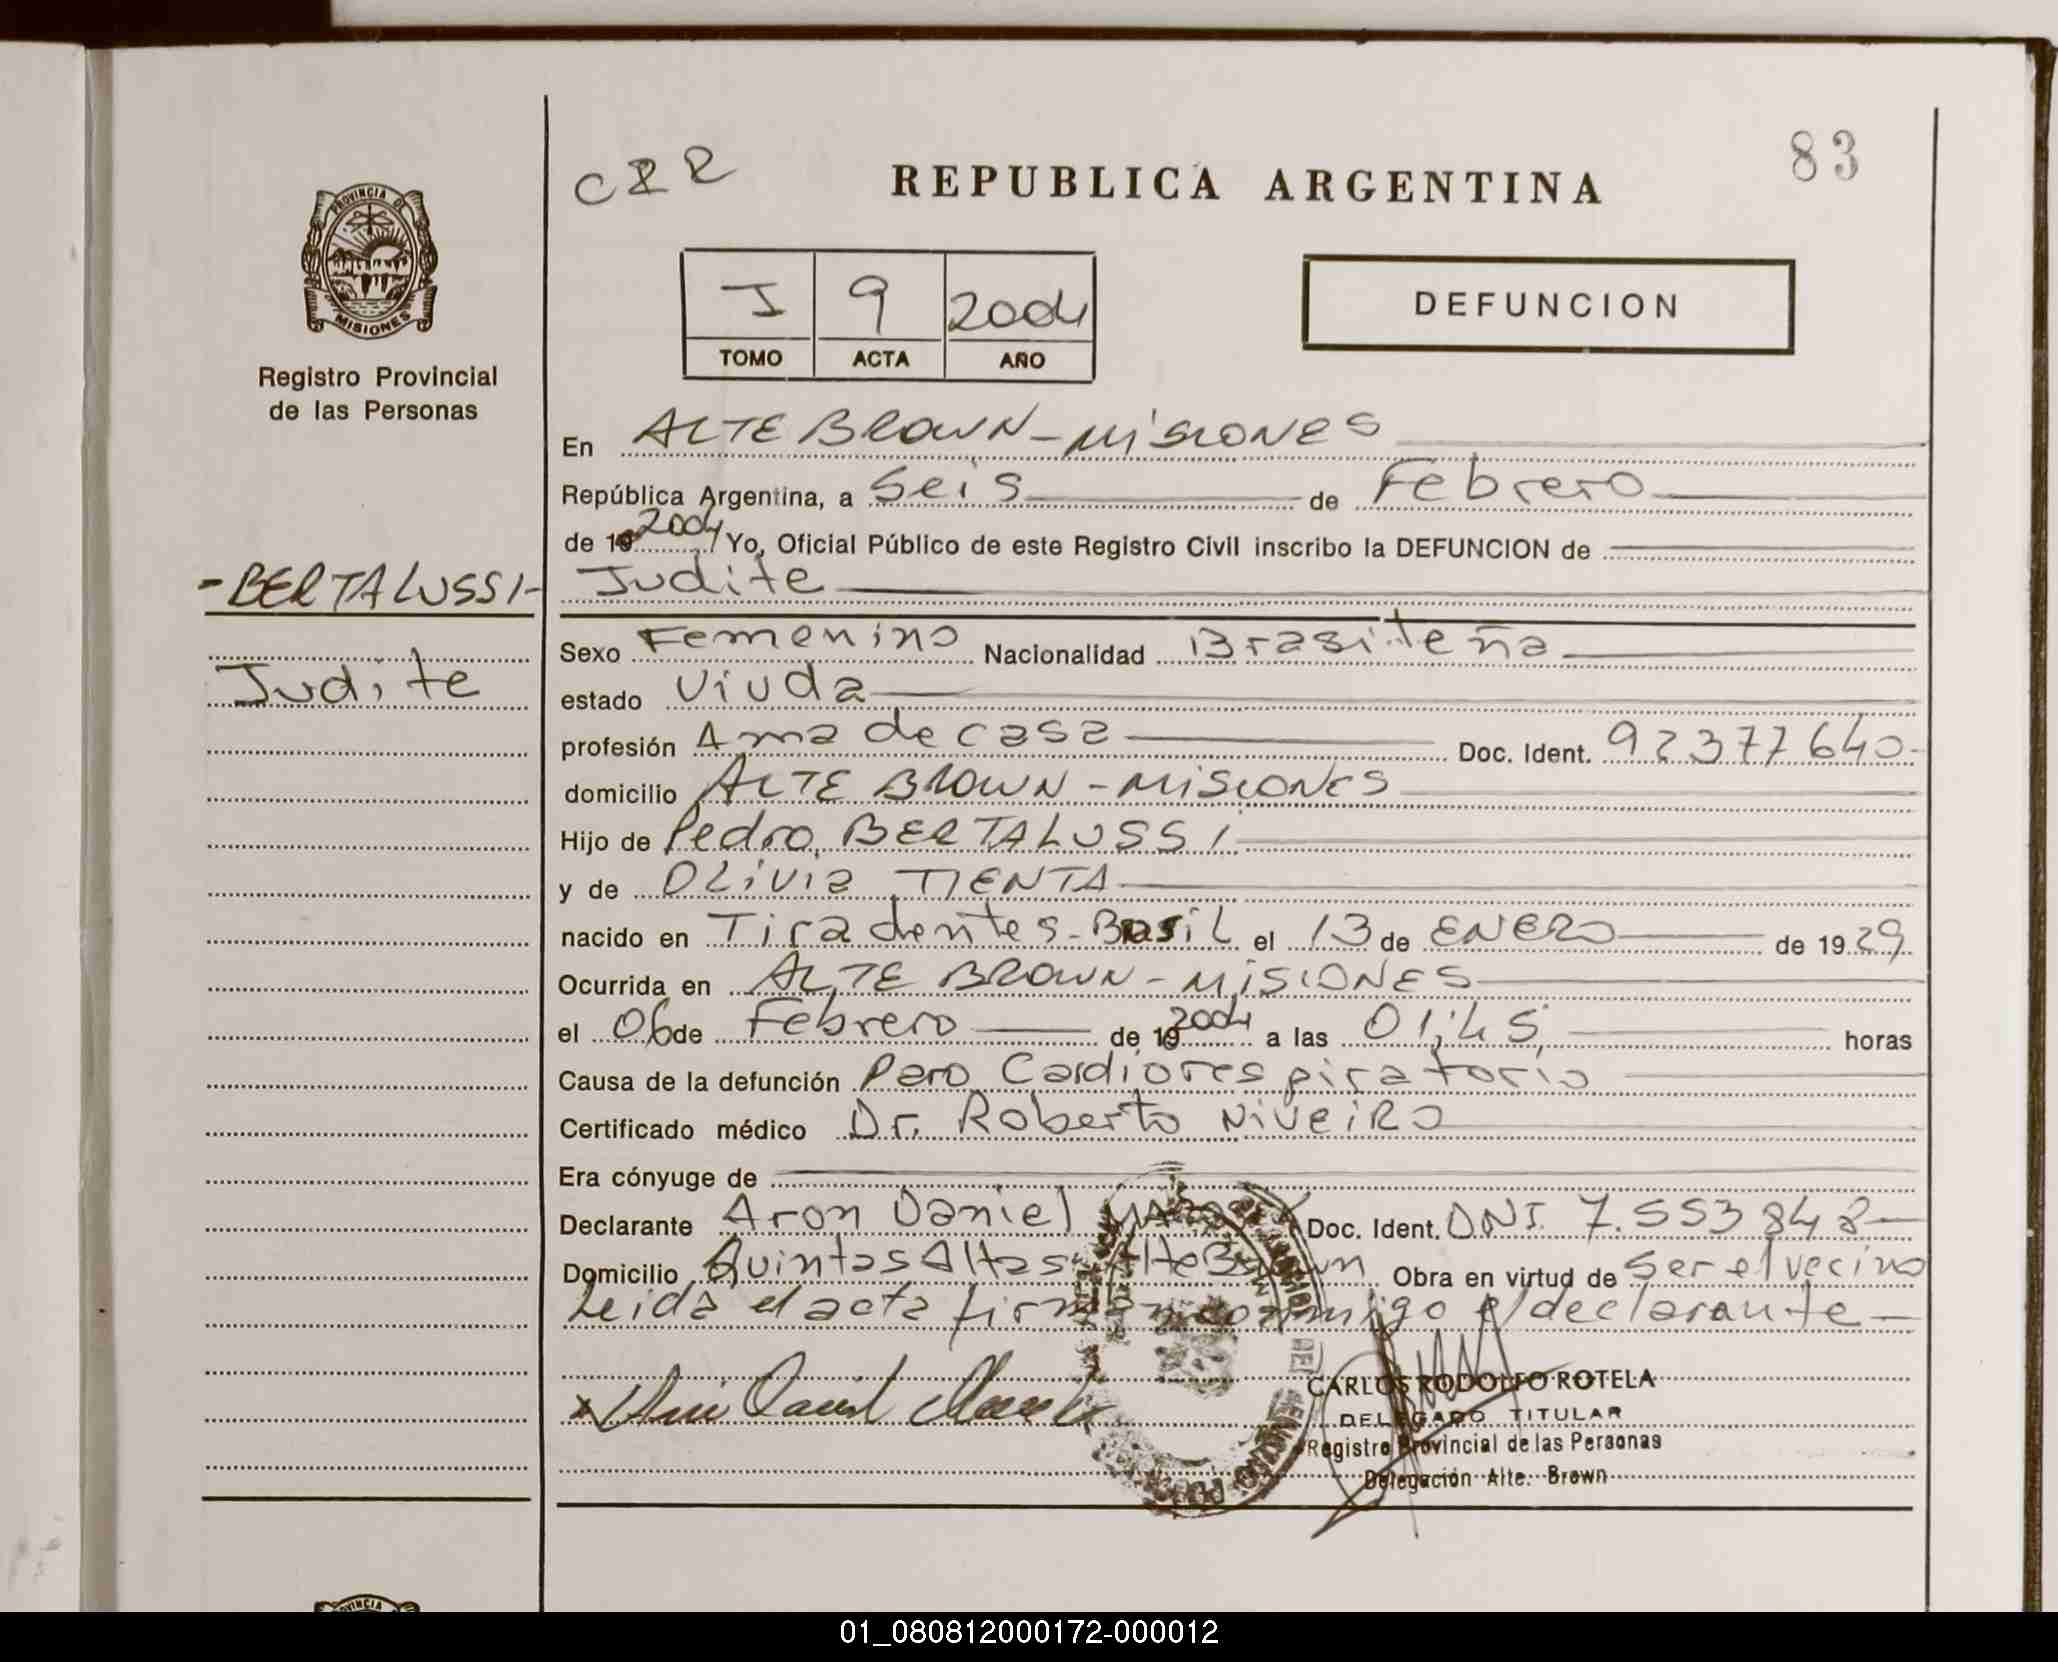 83
REPUBLICA ARGENTINA
PROVINCIA DE
MISIONES
Registro Provincial
de las Personas
J 9 2004
TOMO ACTA AÑO
DEFUNCION
En ALTE BROWN - MISIONES
República Argentina, a Seis de Febrero
de 19 2004 Yo, Oficial Público de este Registro Civil inscribo la DEFUNCION de
- BERTALUSSI -
Judite
Judite
Sexo Femenino Nacionalidad Brasileña
estado Viuda
profesión Ama de casa Doc. Ident. 92377640
domicilio ALTE BROWN - MISIONES
Hijo de Pedro BERTALUSSI
y de OLIVIA
nacido en Tiradentes - Brasil el 13 de ENERO de 1929
Ocurrida en ALTE BROWN - MISIONES
el 06 de Febrero de 19 2004 a las 01,45, horas
Causa de la defunción Paro Cardiorespiratorio
Certificado médico Dr. Roberto NiveiRo
Era cónyuge de
Declarante Aron Daniel Doc. Ident. DNI. 7.553848
Domicilio Quintas Altas Alte Brown Obra en virtud de Ser el vecino
Leida el acta firman conmigo el declarante
CARLOS RODOLFO ROTELA
DELEGADO TITULAR
Registro Provincial de las Personas
Delegación Alte. Brown
01_080812000172-000012